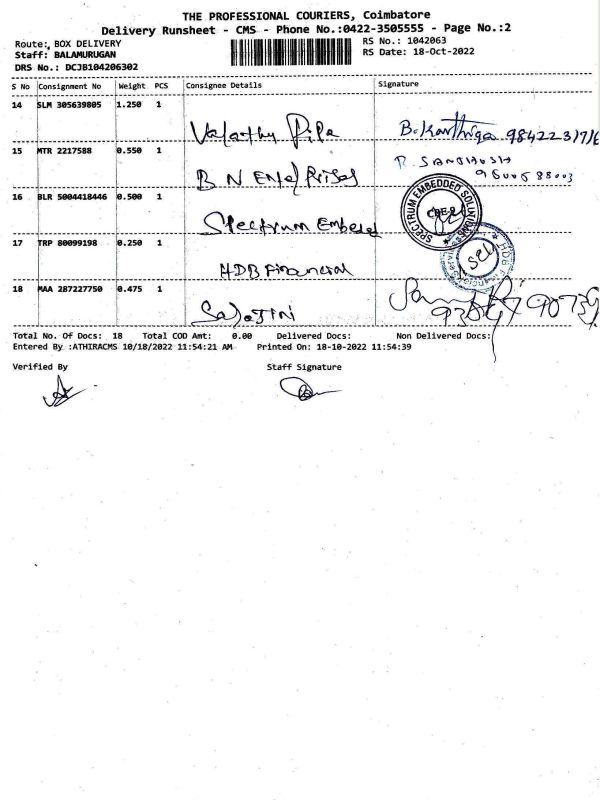 THE PROFESSIONAL COURIERS, Coimbatore
Delivery Runsheet - CMS - Phone No.:0422-3505555 - Page No.:2
Route: BOX DELIVERY
RS No.: 1042063
Staff: BALAMURUGAN
RS Date: 18-Oct-2022
DRS No.: DCJB104206302
S No Consignment No Weight PCS Consignee Details Signature
14 SLM 305639805 1.250 1
B.Karthiga
15 MTR 2217588 0.550 1 B N Enterprises
R. SANTHOSH
16 BLR 5004418446 0.500 1 Spectrum Embeded
SPECTRUM EMBEDDED SOLUTIONS
CBE
17 TRP 80099198 0.250 1 HDB Financial
HDB Financial
18 MAA 287227750 0.475 1 Sarojini
Total No. Of Docs: 18 Total COD Amt: 0.00 Delivered Docs: Non Delivered Docs:
Entered By :ATHIRACMS 10/18/2022 11:54:21 AM Printed On: 18-10-2022 11:54:39
Verified By Staff Signature